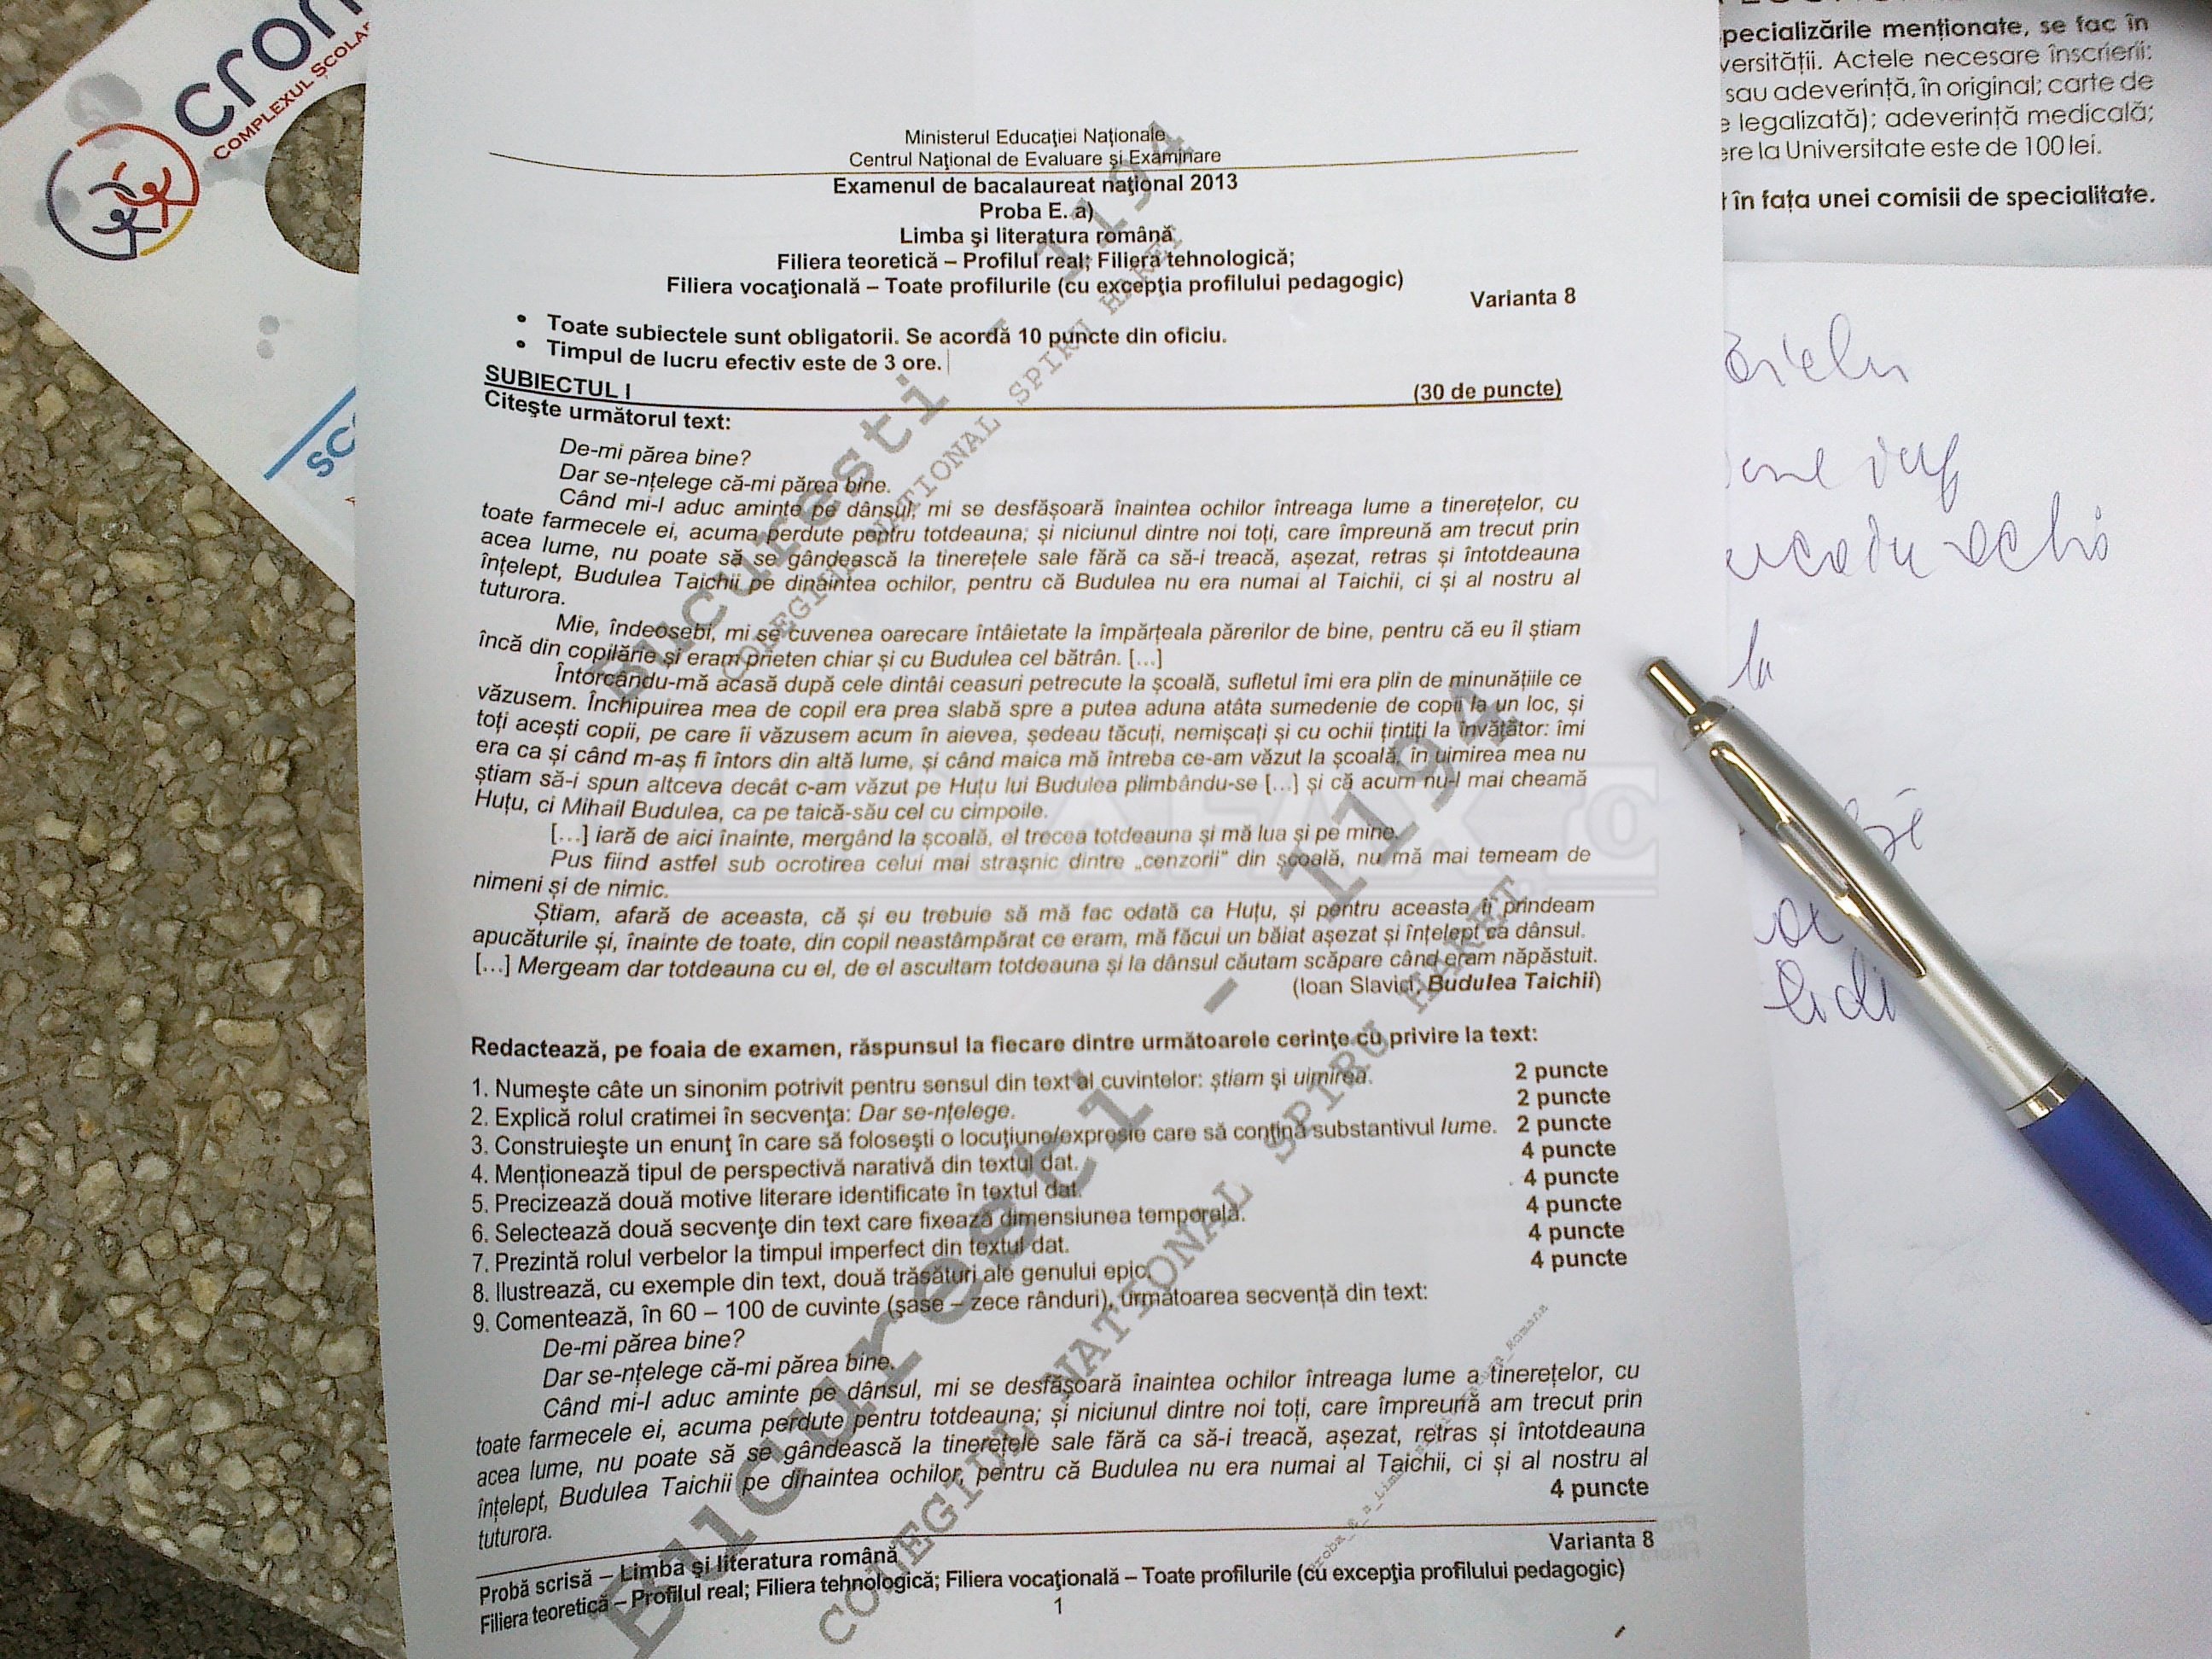 cron
COMPLEXUL ȘCOLAR
pecializările menționate, se fac în
versității. Actele necesare înscrierii:
sau adeverință, în original; carte de
legalizată); adeverință medicală;
ere la Universitate este de 100 lei.
în fața unei comisii de specialitate.
Ministerul Educaţiei Naţionale
Centrul Naţional de Evaluare şi Examinare
Examenul de bacalaureat naţional 2013
Proba E. a)
Limba şi literatura română
Filiera teoretică – Profilul real; Filiera tehnologică;
Filiera vocaţională – Toate profilurile (cu excepţia profilului pedagogic)
Varianta 8
• Toate subiectele sunt obligatorii. Se acordă 10 puncte din oficiu.
• Timpul de lucru efectiv este de 3 ore.
SUBIECTUL I (30 de puncte)
Citeşte următorul text:
De-mi părea bine?
Dar se-nțelege că-mi părea bine.
Când mi-l aduc aminte pe dânsul, mi se desfășoară înaintea ochilor întreaga lume a tinerețelor, cu
toate farmecele ei, acuma perdute pentru totdeauna; și niciunul dintre noi toți, care împreună am trecut prin
acea lume, nu poate să se gândească la tinerețele sale fără ca să-i treacă, așezat, retras și întotdeauna
înțelept, Budulea Taichii pe dinaintea ochilor, pentru că Budulea nu era numai al Taichii, ci și al nostru al
tuturora.
Mie, îndeosebi, mi se cuvenea oarecare întâietate la împărțeala părerilor de bine, pentru că eu îl știam
încă din copilărie și eram prieten chiar și cu Budulea cel bătrân. [...]
Întorcându-mă acasă după cele dintâi ceasuri petrecute la școală, sufletul îmi era plin de minunățiile ce
văzusem. Închipuirea mea de copil era prea slabă spre a putea aduna atâta sumedenie de copii la un loc, și
toți acești copii, pe care îi văzusem acum în aievea, ședeau tăcuți, nemișcați și cu ochii țintiți la învățător: îmi
era ca și când m-aș fi întors din altă lume, și când maica mă întreba ce-am văzut la școală, în uimirea mea nu
știam să-i spun altceva decât c-am văzut pe Huțu lui Budulea plimbându-se [...] și că acum nu-l mai cheamă
Huțu, ci Mihail Budulea, ca pe taică-său cel cu cimpoile.
[...] iară de aici înainte, mergând la școală, el trecea totdeauna și mă lua și pe mine.
Pus fiind astfel sub ocrotirea celui mai strașnic dintre „cenzorii" din școală, nu mă mai temeam de
nimeni și de nimic.
Știam, afară de aceasta, că și eu trebuie să mă fac odată ca Huțu, și pentru aceasta îi prindeam
apucăturile și, înainte de toate, din copil neastâmpărat ce eram, mă făcui un băiat așezat și înțelept ca dânsul.
[...] Mergeam dar totdeauna cu el, de el ascultam totdeauna și la dânsul căutam scăpare când eram năpăstuit.
(Ioan Slavici, Budulea Taichii)
Redactează, pe foaia de examen, răspunsul la fiecare dintre următoarele cerinţe cu privire la text:
1. Numeşte câte un sinonim potrivit pentru sensul din text al cuvintelor: știam şi uimirea. 2 puncte
2. Explică rolul cratimei în secvenţa: Dar se-nțelege. 2 puncte
3. Construieşte un enunţ în care să foloseşti o locuţiune/expresie care să conţină substantivul lume. 2 puncte
4. Menţionează tipul de perspectivă narativă din textul dat. 4 puncte
5. Precizează două motive literare identificate în textul dat. 4 puncte
6. Selectează două secvenţe din text care fixează dimensiunea temporală. 4 puncte
7. Prezintă rolul verbelor la timpul imperfect din textul dat. 4 puncte
8. Ilustrează, cu exemple din text, două trăsături ale genului epic. 4 puncte
9. Comentează, în 60 – 100 de cuvinte (şase – zece rânduri), următoarea secvență din text:
De-mi părea bine?
Dar se-nțelege că-mi părea bine.
Când mi-l aduc aminte pe dânsul, mi se desfășoară înaintea ochilor întreaga lume a tinerețelor, cu
toate farmecele ei, acuma perdute pentru totdeauna; și niciunul dintre noi toți, care împreună am trecut prin
acea lume, nu poate să se gândească la tinerețele sale fără ca să-i treacă, așezat, retras și întotdeauna
înțelept, Budulea Taichii pe dinaintea ochilor, pentru că Budulea nu era numai al Taichii, ci și al nostru al
tuturora. 4 puncte
Probă scrisă – Limba şi literatura română Varianta 8
Filiera teoretică – Profilul real; Filiera tehnologică; Filiera vocaţională – Toate profilurile (cu excepţia profilului pedagogic)
1
Bucuresti - 1194
COLEGIUL NATIONAL SPIRU HARET
Bucuresti - 1194
COLEGIUL NATIONAL SPIRU HARET
la